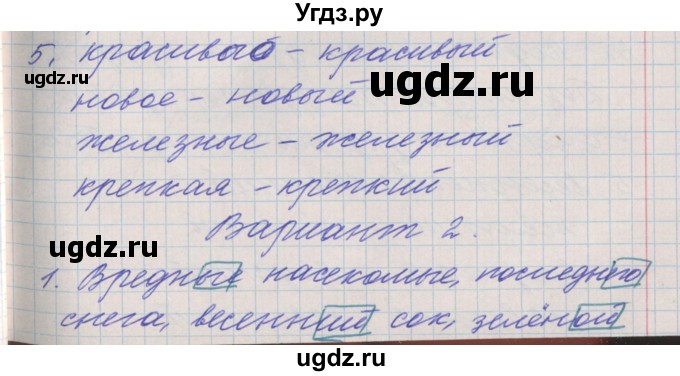 Угдз.ру
5. красивый – красивый
ugdz.ru
ugdz.ru
новое – новый
железные – железный
крепкая – крепкий
ugdz.ru
Вариант 2.
ugdz.ru
1. Вредные насекомые, последнего
снега, весенний сок, зелёной
ugdz.ru